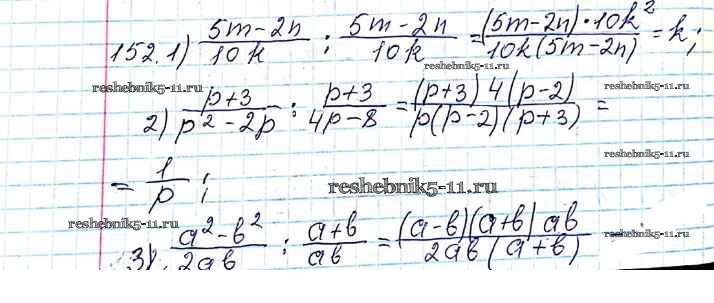 152. 1) (5m-2n)/(10k) : (5m-2n)/(10k) = ((5m-2n)·10k²)/(10k(5m-2n)) = k;
reshebnik5-11.ru reshebnik5-11.ru
2) (p+3)/(p²-2p) : (p+3)/(4p-8) = ((p+3)4(p-2))/(p(p-2)(p+3)) =
= 1/p; reshebnik5-11.ru
reshebnik5-11.ru reshebnik5-11.ru
3) (a²-b²)/(2ab) : (a+b)/(ab) = ((a-b)(a+b)ab)/(2ab(a+b))